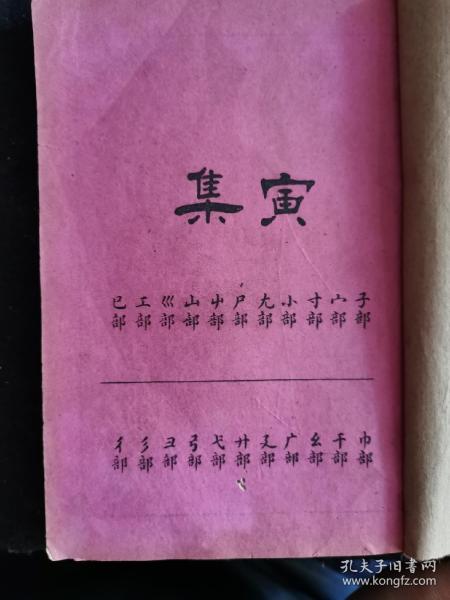 寅集
子部
宀部
寸部
小部
尢部
尸部
屮部
山部
巛部
工部
己部
巾部
干部
幺部
广部
廴部
廾部
弋部
弓部
彐部
彡部
彳部
孔夫子旧书网
www.kongfz.com